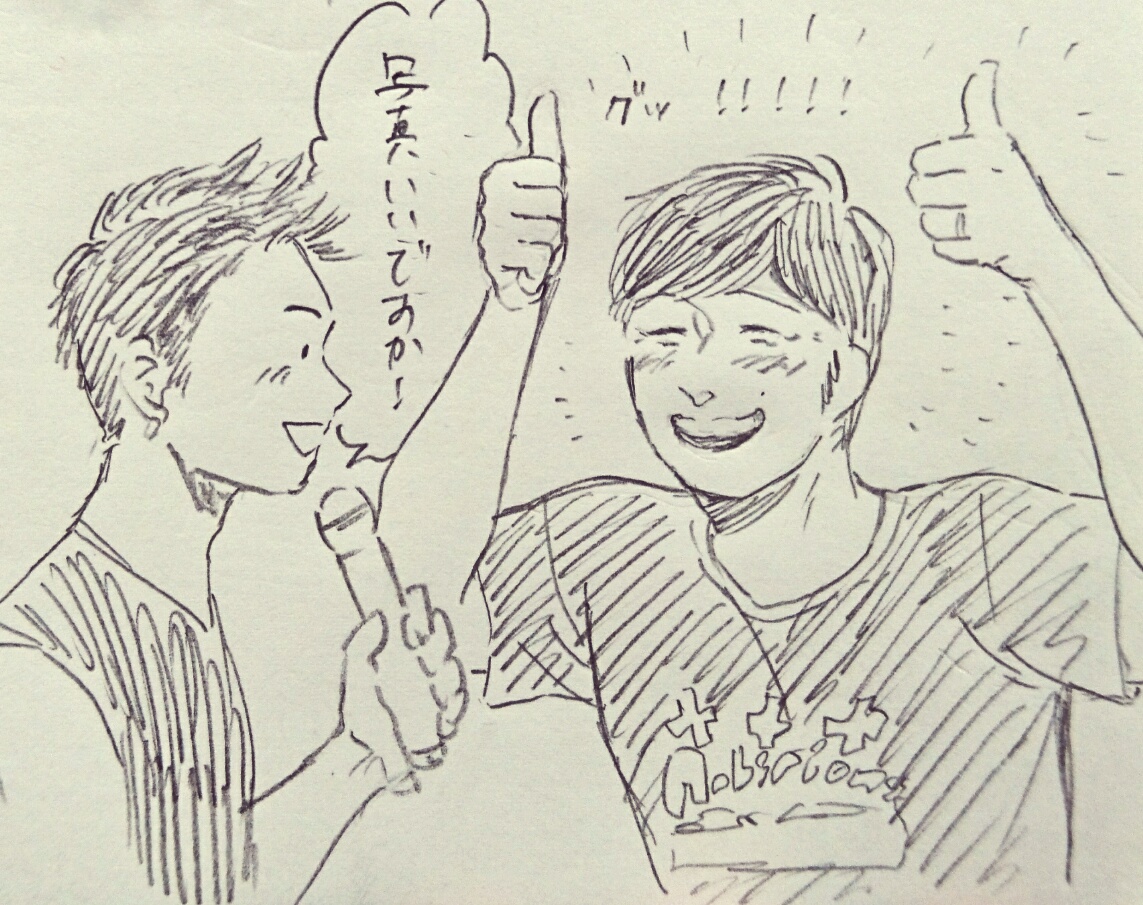 写真いいですかー
グッ!!!!!